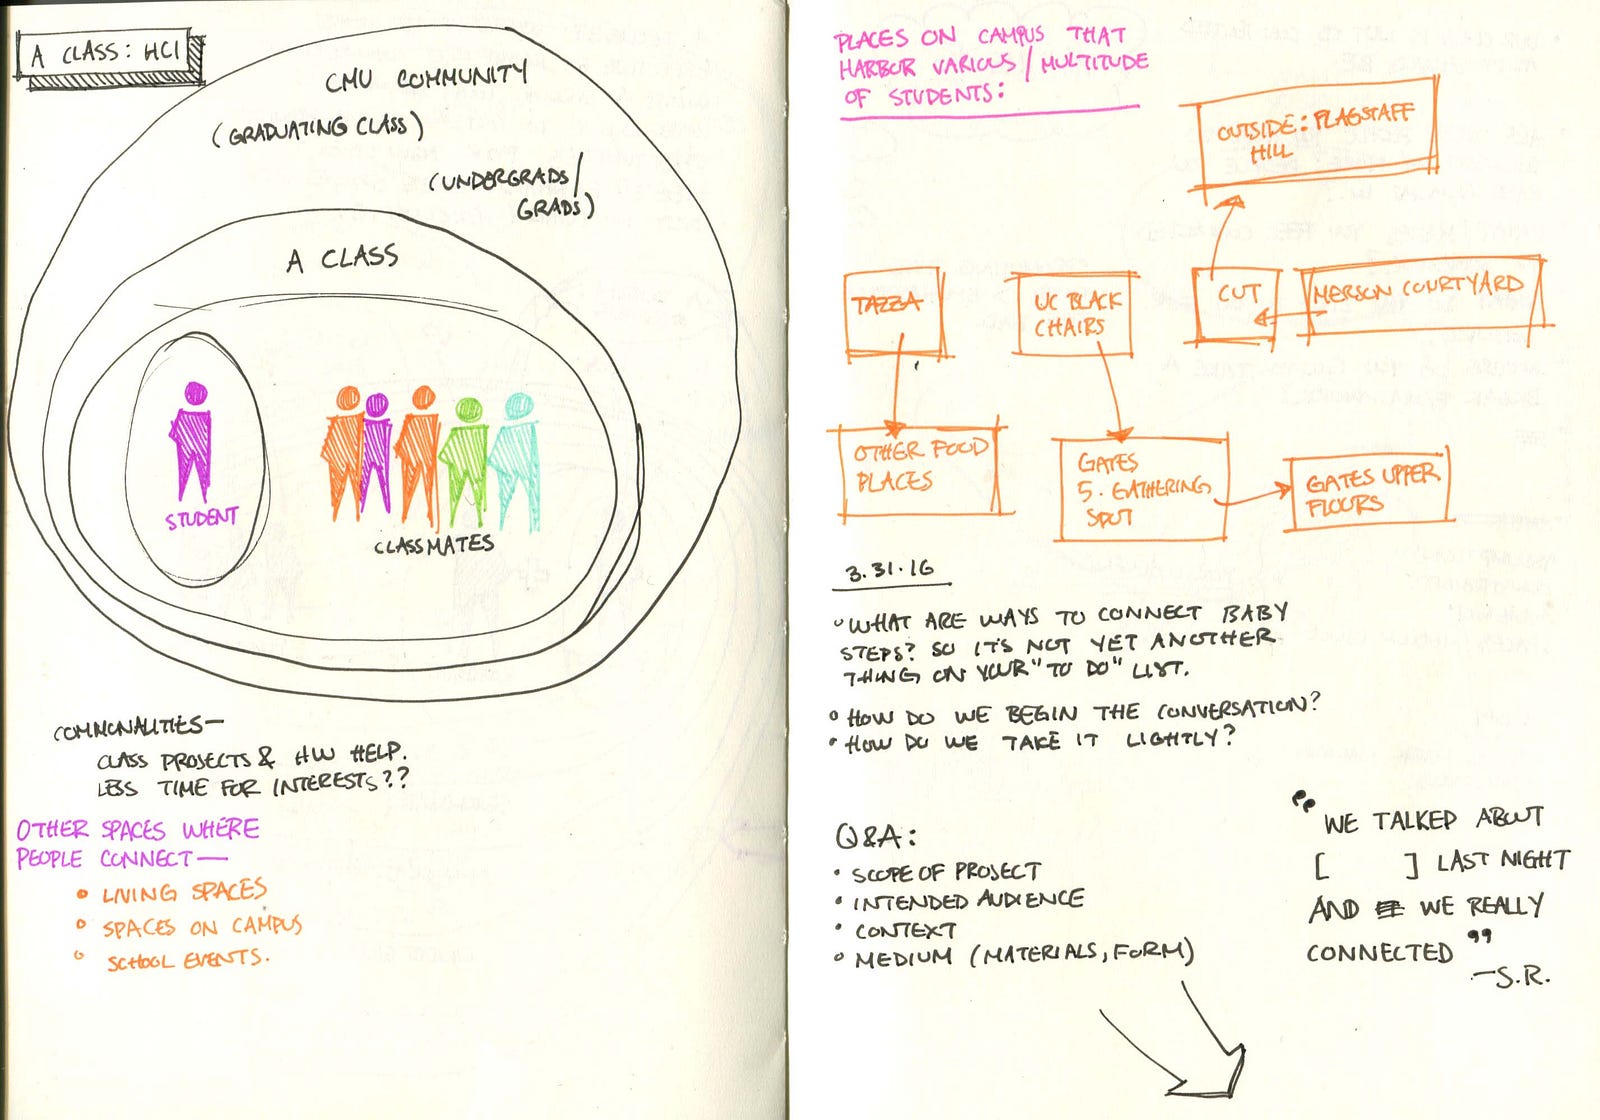 A CLASS: HCI
CMU COMMUNITY
(GRADUATING CLASS)
(UNDERGRADS/
GRADS)
A CLASS
STUDENT
CLASSMATES
COMMONALITIES—
CLASS PROJECTS & HW HELP.
LESS TIME FOR INTERESTS??
OTHER SPACES WHERE
PEOPLE CONNECT—
• LIVING SPACES
• SPACES ON CAMPUS
• SCHOOL EVENTS.
PLACES ON CAMPUS THAT
HARBOR VARIOUS/MULTITUDE
OF STUDENTS:
OUTSIDE: FLAGSTAFF
HILL
TAZZA
UC BLACK
CHAIRS
CUT
MERSON COURTYARD
OTHER FOOD
PLACES
GATES
5. GATHERING
SPOT
GATES UPPER
FLOORS
3.31.16
• WHAT ARE WAYS TO CONNECT BABY
STEPS? SO IT'S NOT YET ANOTHER
THING ON YOUR "TO DO" LIST.
• HOW DO WE BEGIN THE CONVERSATION?
• HOW DO WE TAKE IT LIGHTLY?
Q&A:
• SCOPE OF PROJECT
• INTENDED AUDIENCE
• CONTEXT
• MEDIUM (MATERIALS, FORM)
"WE TALKED ABOUT
[ ] LAST NIGHT
AND WE REALLY
CONNECTED"
—S.R.